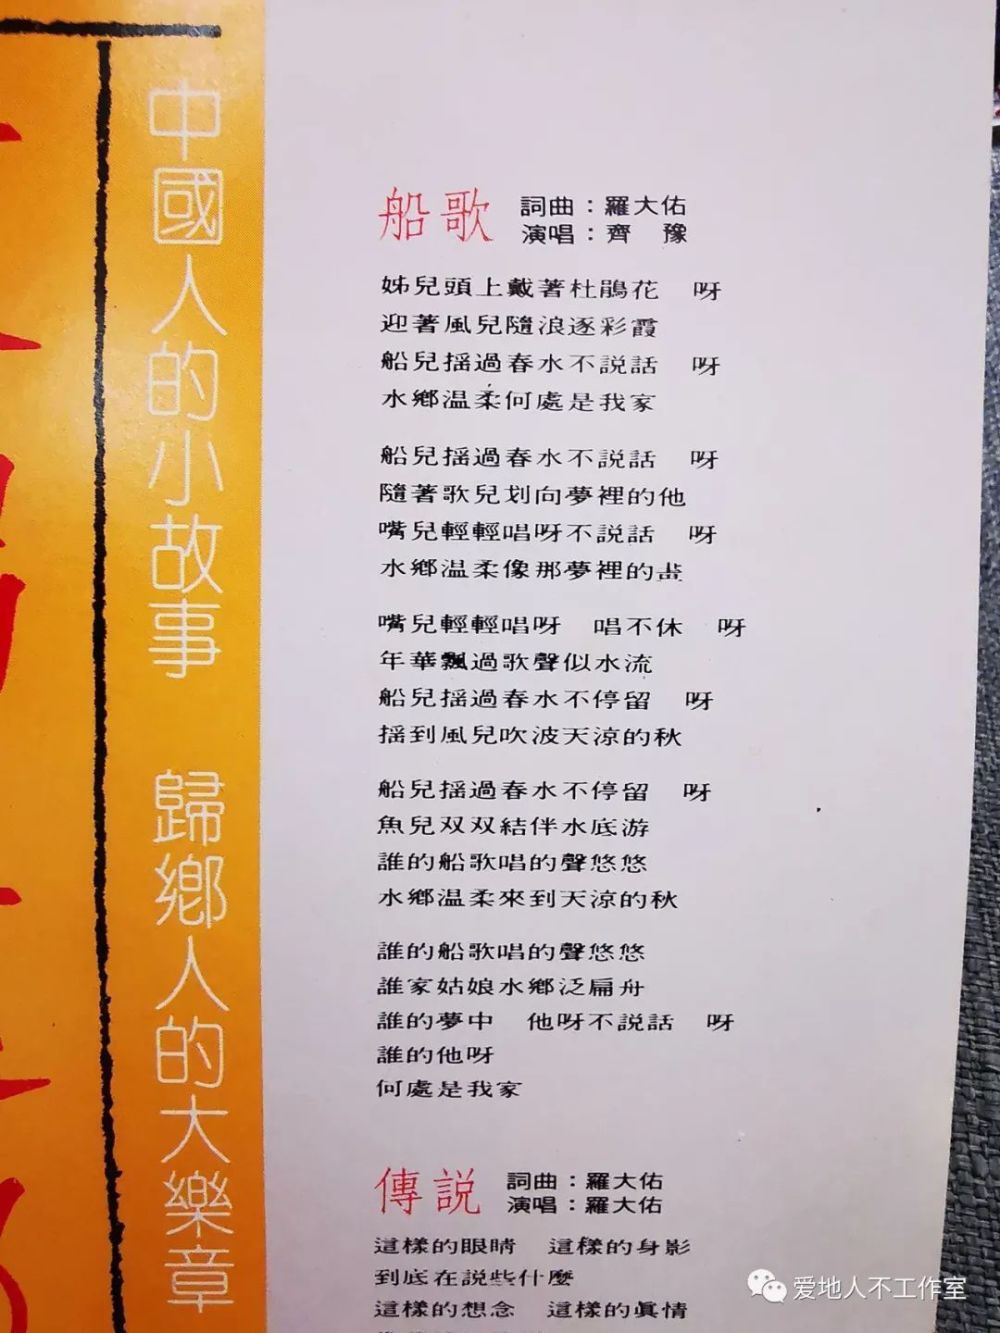 中國人的小故事　歸鄉人的大樂章
船歌
詞曲：羅大佑
演唱：齊　豫
姊兒頭上戴著杜鵑花　呀
迎著風兒隨浪逐彩霞
船兒搖過春水不說話　呀
水鄉温柔何處是我家
船兒搖過春水不說話　呀
隨著歌兒划向夢裡的他
嘴兒輕輕唱呀不說話　呀
水鄉温柔像那夢裡的畫
嘴兒輕輕唱呀　唱不休　呀
年華飄過歌聲似水流
船兒搖過春水不停留　呀
搖到風兒吹波天涼的秋
船兒搖過春水不停留　呀
魚兒双双結伴水底游
誰的船歌唱的聲悠悠
水鄉温柔來到天涼的秋
誰的船歌唱的聲悠悠
誰家姑娘水鄉泛扁舟
誰的夢中　他呀不說話　呀
誰的他呀
何處是我家
傳說
詞曲：羅大佑
演唱：羅大佑
這樣的眼睛　這樣的身影
到底在說些什麼
這樣的想念　這樣的眞情
爱地人不工作室